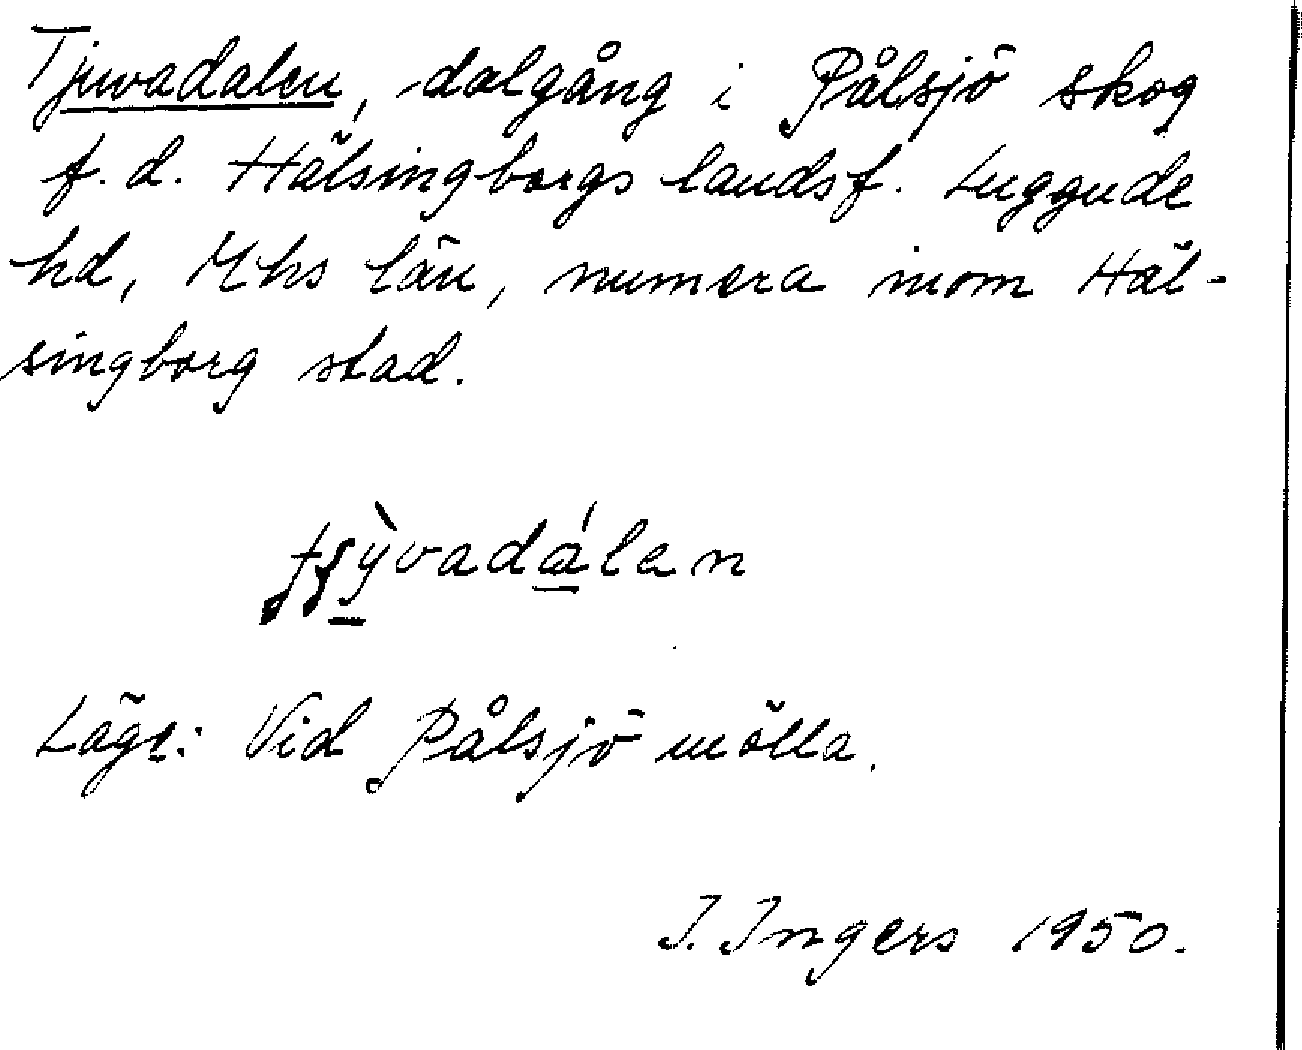 Tjuvadalen, dalgång i Pålsjö skog
f.d. Hälsingborgs landsf. Luggude
hd, Mhs län, numera inom Häl-
singborg stad.
tʃỳ̠vadá̠len
Läge: Vid Pålsjö mölla.
I. Ingers 1950.